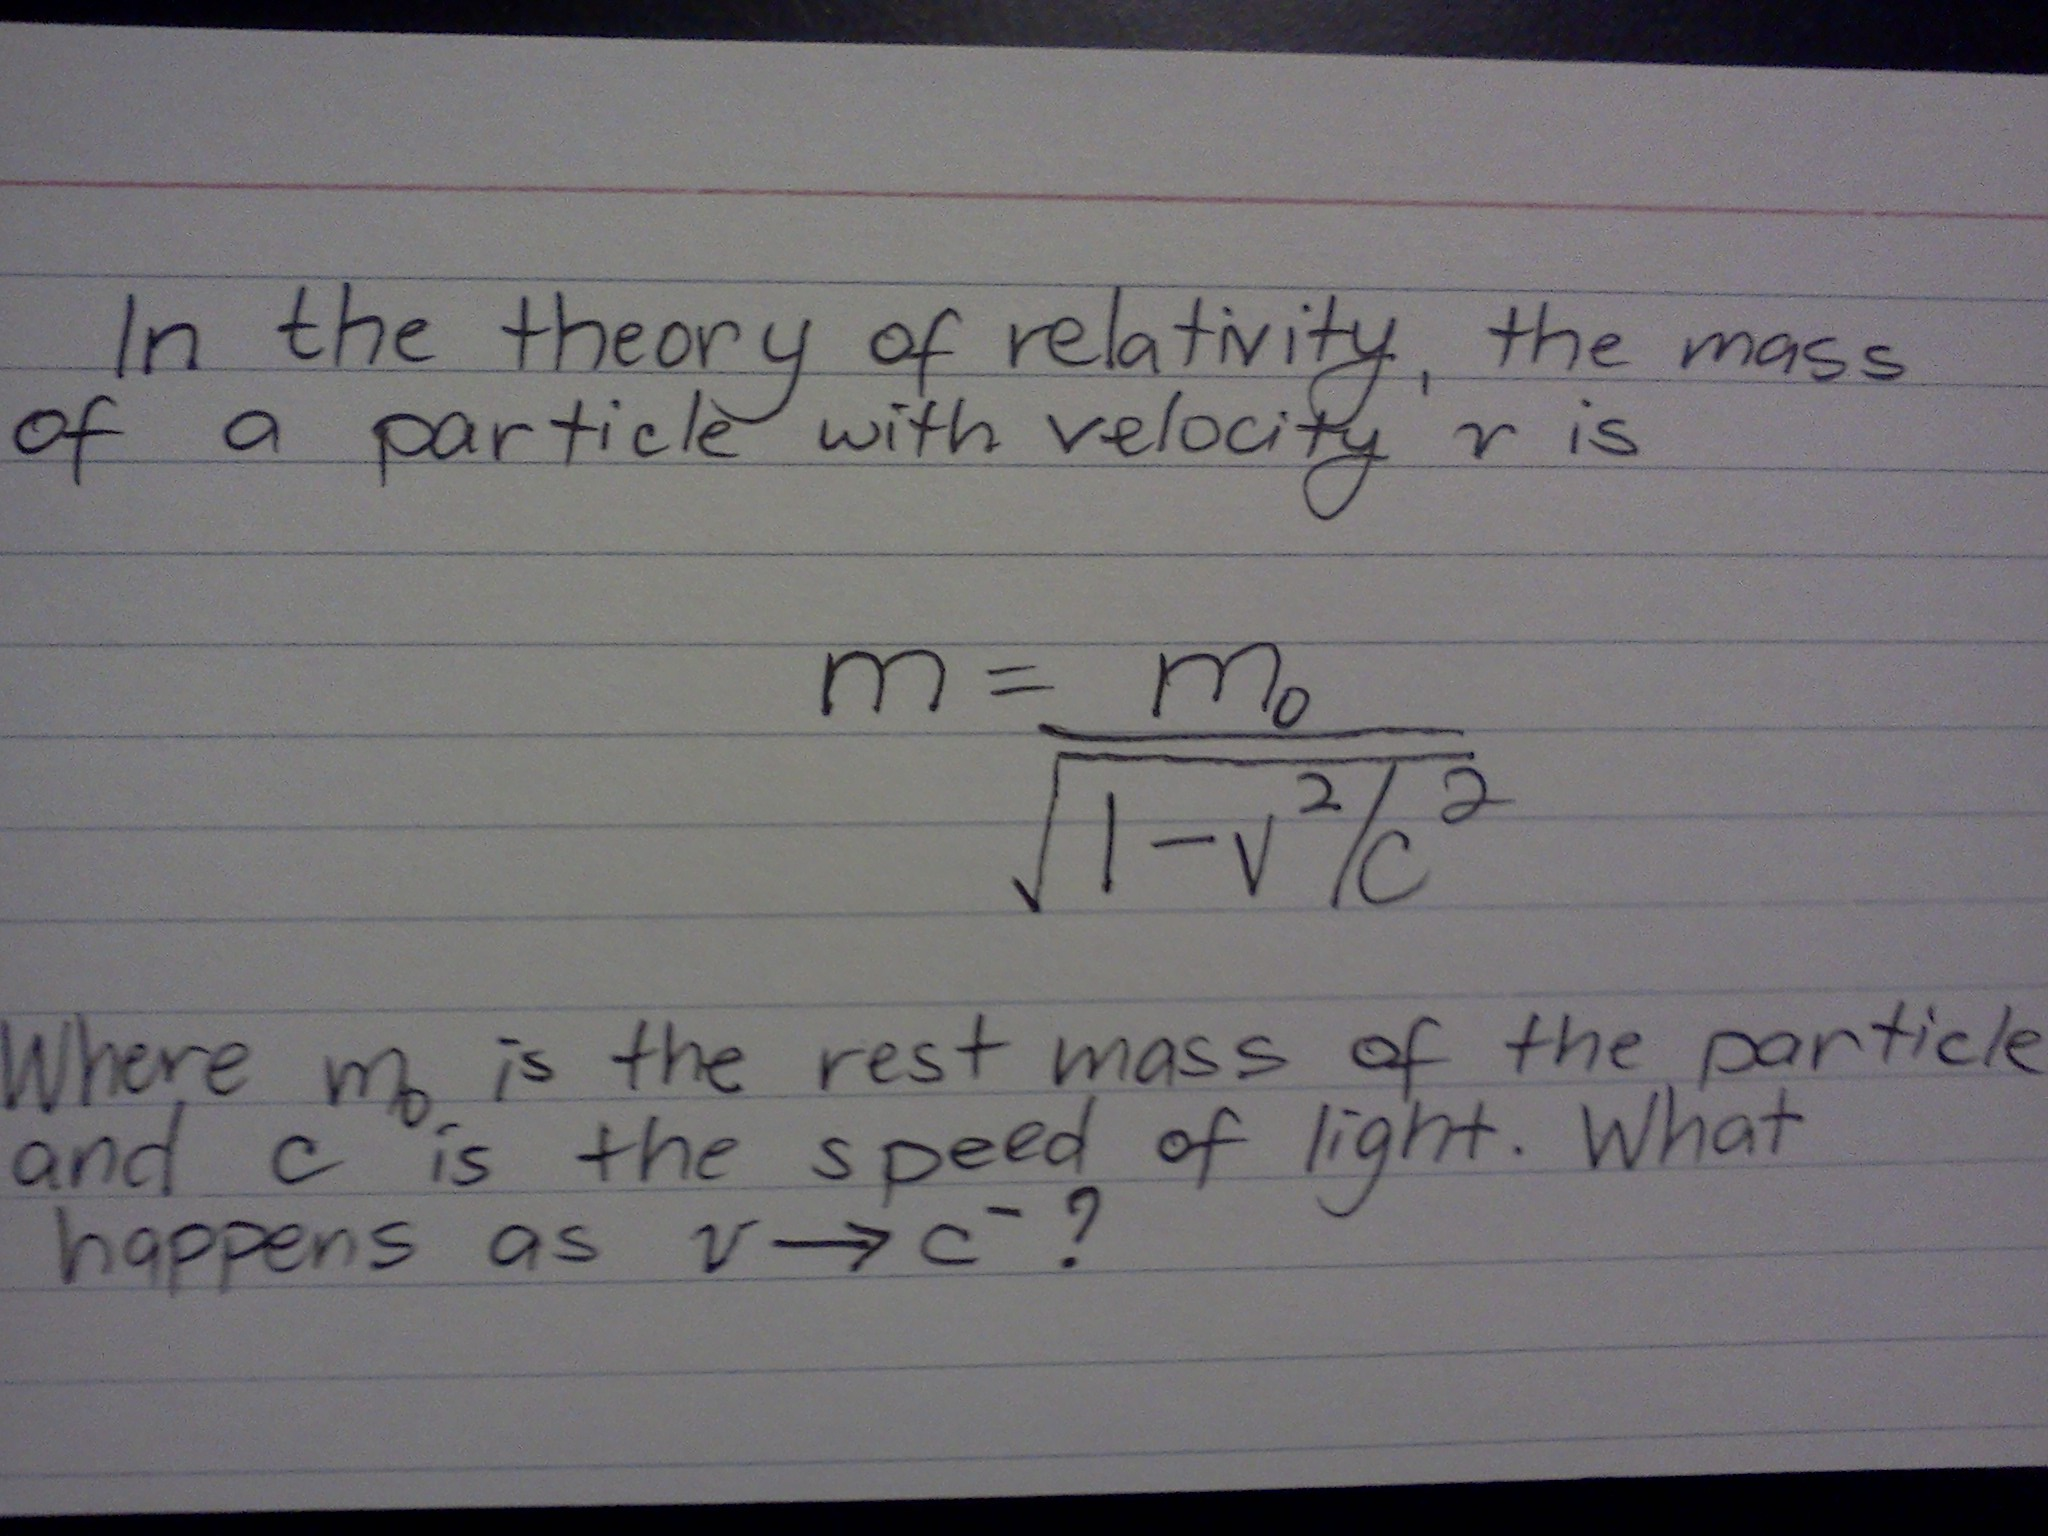 In the theory of relativity, the mass
of a particle with velocity v is
m = m₀
√1-v²/c²
Where m₀ is the rest mass of the particle
and c is the speed of light. What
happens as v → c⁻?